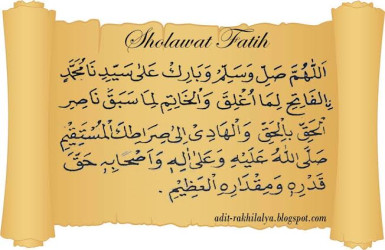 Sholawat Fatih
اَللّٰهُمَّ صَلِّ وَسَلِّمْ وَبَارِكْ عَلٰى سَيِّدِنَا مُحَمَّدٍ
ࣙالْفَاتِحِ لِمَا اُغْلِقَ وَالْخَاتِمِ لِمَا سَبَقَ نَاصِرِ
الْحَقِّ بِالْحَقِّ وَالْهَادِيْ اِلٰى صِرَاطِكَ الْمُسْتَقِيْمِ
صَلَّى اللهُ عَلَيْهِ وَعَلٰى اٰلِهٖ وَاَصْحَابِهٖ حَقَّ
قَدْرِهٖ وَمِقْدَارِهِ الْعَظِيْمِ.
adit-rakhilalya.blogspot.com